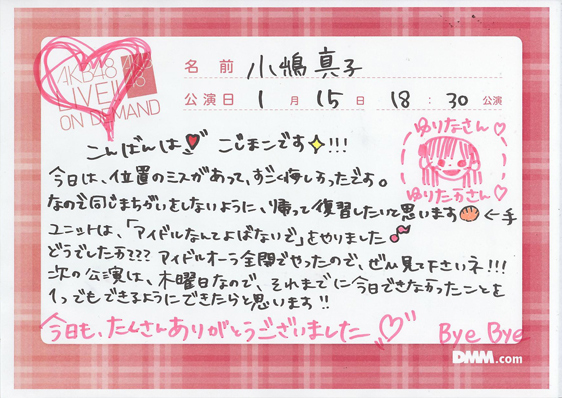 AKB48
LIVE!!
ON DEMAND
AKB
48
名前 小嶋真子
公演日 1月15日 18:30公演
こんばんは♥ こじまこです✨!!!
ゆりなさん♡
ゆりたかさん♡
今日は、位置のミスがあって、すごく悔しかったです。
なので同じまちがいをしないように、帰って復習したいと思います ←手
ユニットは、「アイドルなんてよばないで」をやりました♪
どうでしたか??? アイドルオーラ全開でやったので、ぜひ見て下さいネ!!!
次の公演は、木曜日なので、それまでに今日できなかったことを
1つでもできるようにできたらと思います!!
今日も、たくさんありがとうございました♡
Bye Bye
DMM.com